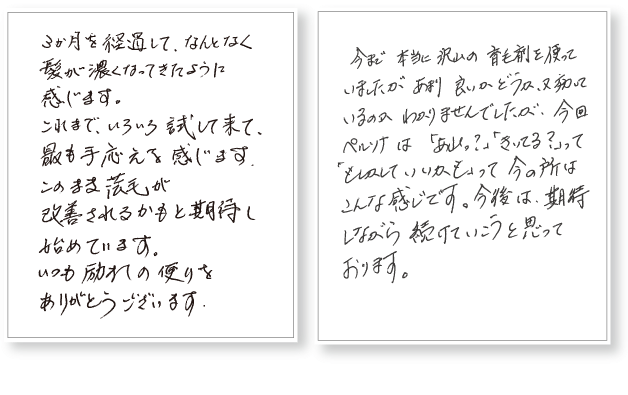 3か月を経過して、なんとなく
髪が濃くなってきたように
感じます。
これまで、いろいろ試して来て、
最も手応えを感じます.
このまま薄毛が
改善されるかもと期待し
始めています。
いつも励ましの便りを
ありがとうございます.
今まで 本当に 沢山の 育毛剤を使って
いましたが あまり 良いか どうか、又効いて
いるのか わかりませんでしたが、今回
ペルソナ は 「あれっ?」「きいてる?」って
「もしかして いいかも」って 今の所は
こんな感じです。今後は、期待
しながら 続けていこうと思って
おります。